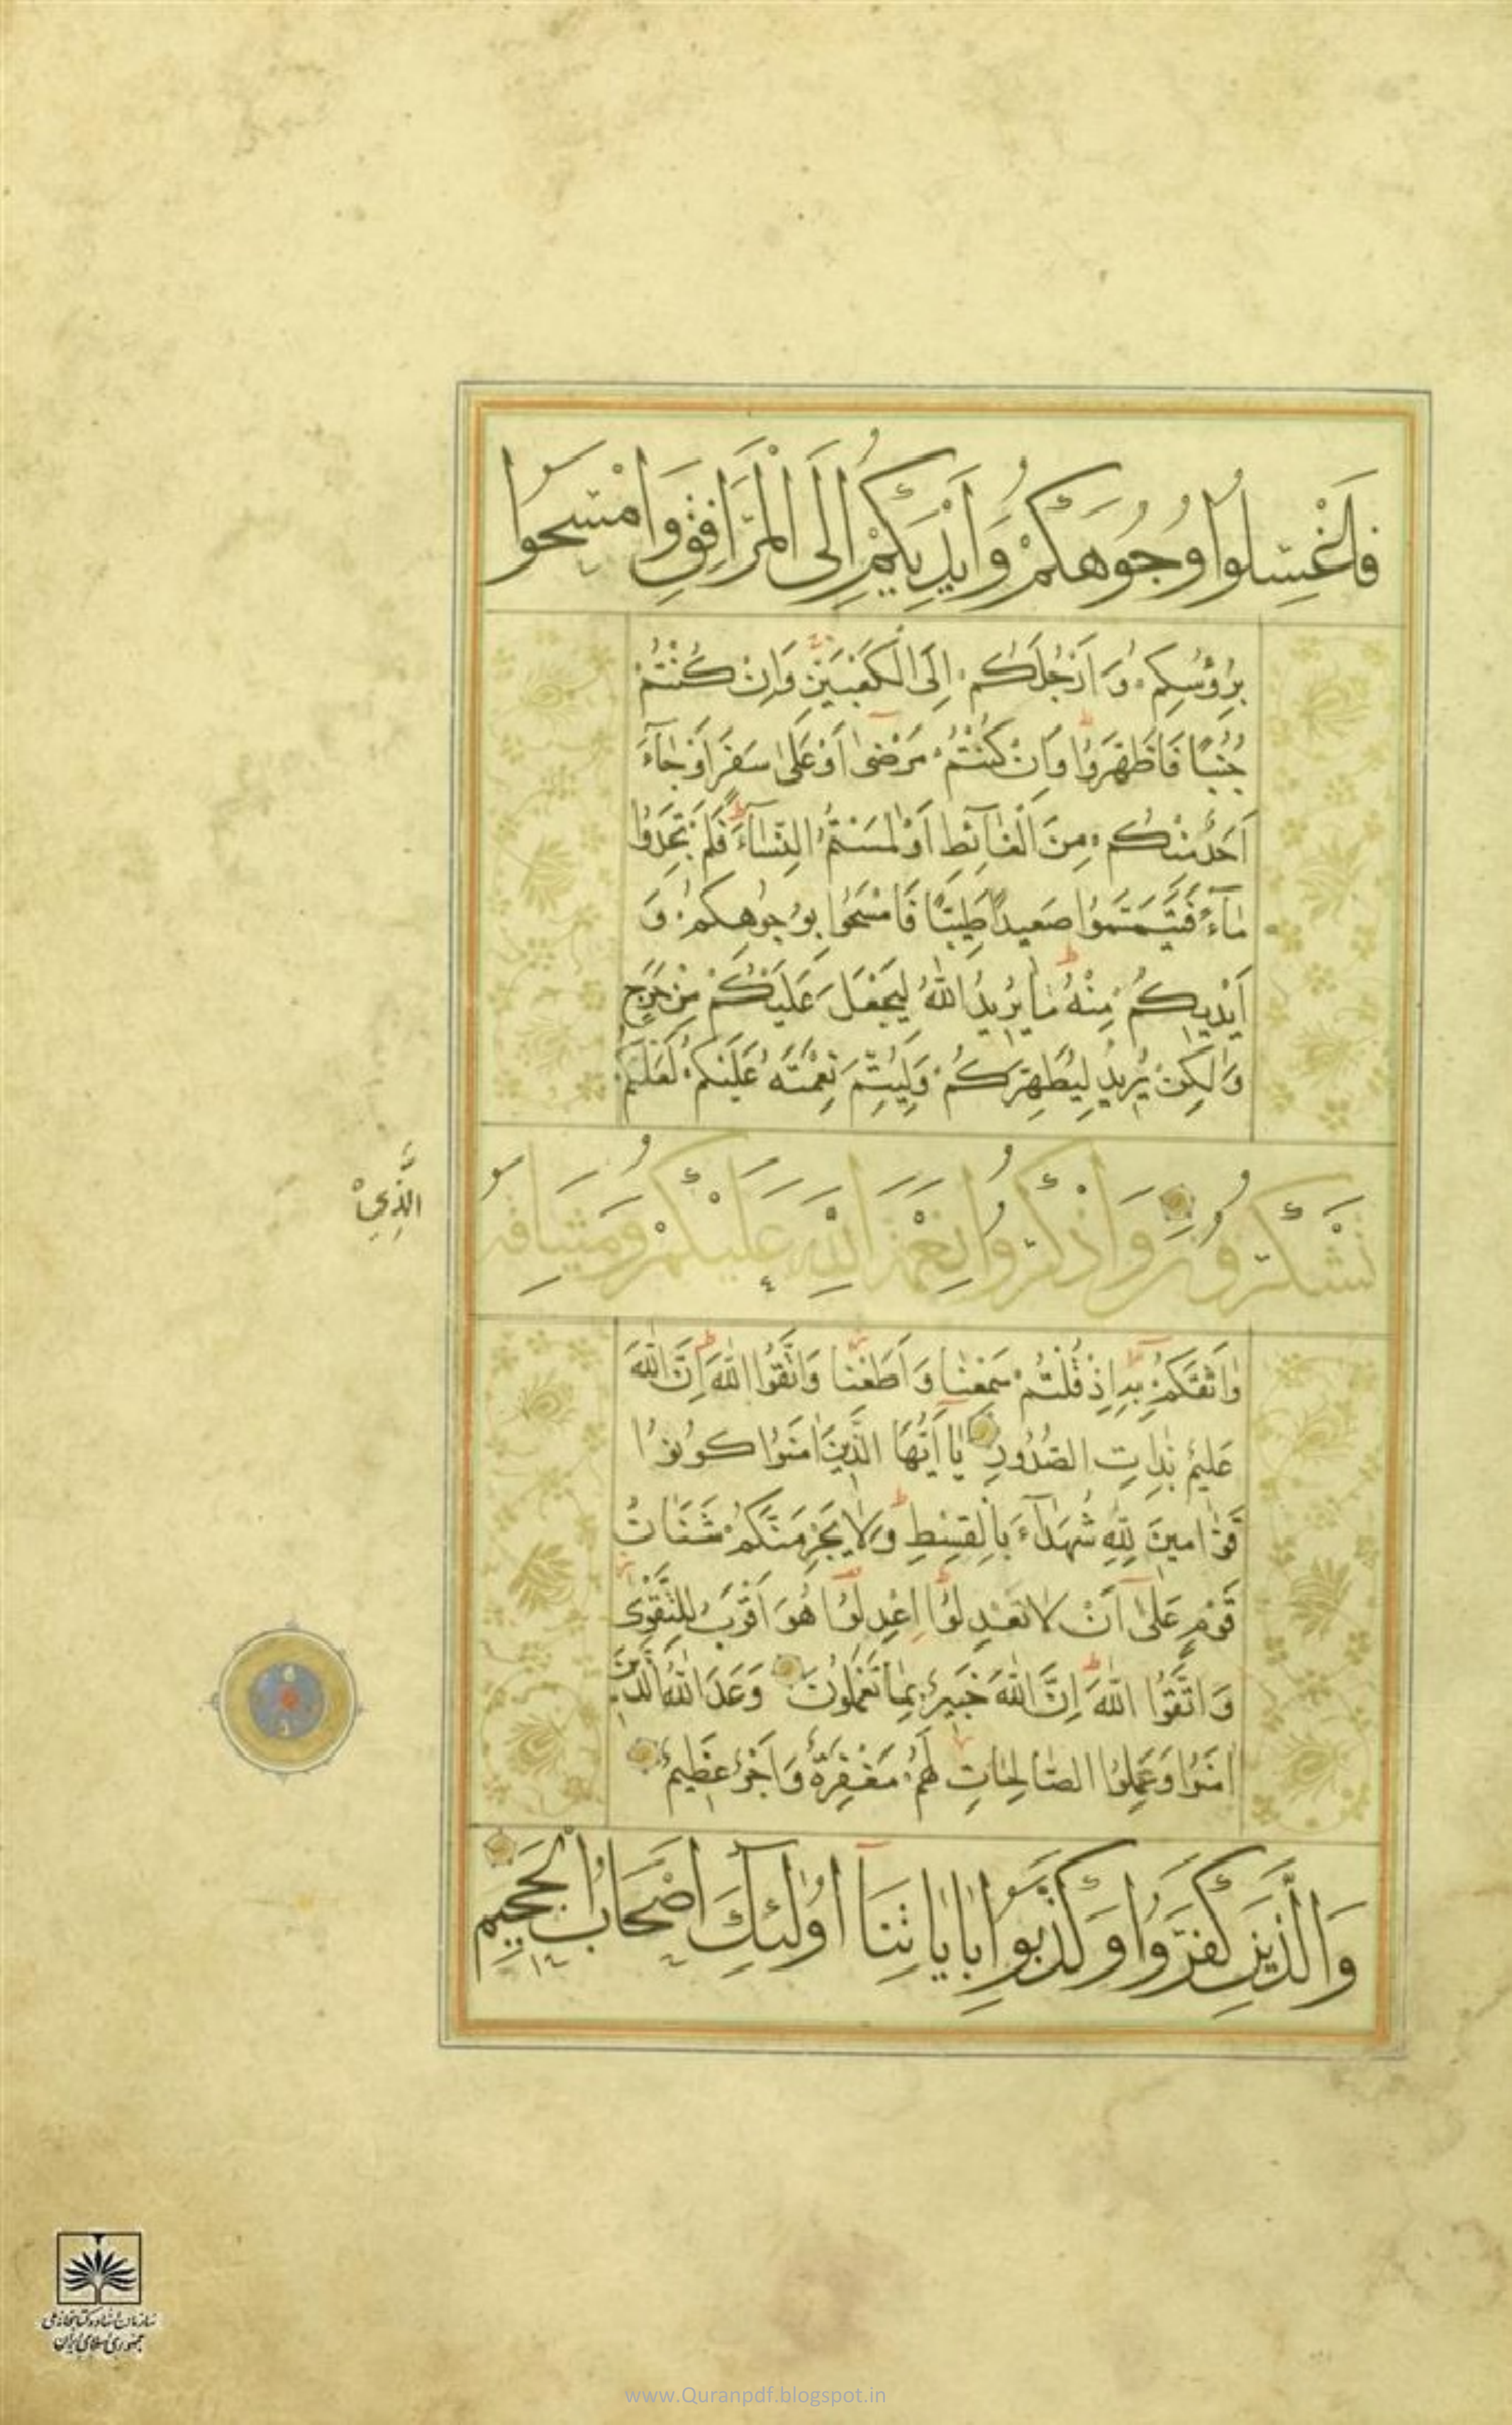 فَاغْسِلُوا وُجُوهَكُمْ وَاَيْدِيَكُمْ اِلَى الْمَرَافِقِ وَامْسَحُوا
بِرُؤُسِكُمْ وَاَرْجُلَكُمْ اِلَى الْكَعْبَيْنِ وَاِنْ كُنْتُمْ
جُنُبًا فَاطَّهَّرُوا وَاِنْ كُنْتُمْ مَرْضٰى اَوْ عَلٰى سَفَرٍ اَوْ جٰآءَ
اَحَدٌ مِنْكُمْ مِنَ الْغٰآئِطِ اَوْ لٰمَسْتُمُ النِّسٰآءَ فَلَمْ تَجِدُوا
مٰآءً فَتَيَمَّمُوا صَعِيدًا طَيِّبًا فَامْسَحُوا بِوُجُوهِكُمْ وَ
اَيْدِيكُمْ مِنْهُ مٰا يُرِيدُ اللّٰهُ لِيَجْعَلَ عَلَيْكُمْ مِنْ حَرَجٍ
وَلٰكِنْ يُرِيدُ لِيُطَهِّرَكُمْ وَلِيُتِمَّ نِعْمَتَهُ عَلَيْكُمْ لَعَلَّكُمْ
تَشْكُرُونَ وَاذْكُرُوا نِعْمَةَ اللّٰهِ عَلَيْكُمْ وَمِيثَاقَهُ
الَّذِيْ
وٰاثَقَكُمْ بِهِ اِذْ قُلْتُمْ سَمِعْنٰا وَاَطَعْنٰا وَاتَّقُوا اللّٰهَ اِنَّ اللّٰهَ
عَلِيمٌ بِذٰاتِ الصُّدُورِ يٰا اَيُّهَا الَّذِينَ اٰمَنُوا كُونُوا
قَوّٰامِينَ لِلّٰهِ شُهَدٰآءَ بِالْقِسْطِ وَلٰا يَجْرِمَنَّكُمْ شَنَاٰنُ
قَوْمٍ عَلٰى اَنْ لٰا تَعْدِلُوا اِعْدِلُوا هُوَ اَقْرَبُ لِلتَّقْوٰى
وَاتَّقُوا اللّٰهَ اِنَّ اللّٰهَ خَبِيرٌ بِمٰا تَعْمَلُونَ وَعَدَ اللّٰهُ الَّذِينَ
اٰمَنُوا وَعَمِلُوا الصّٰالِحٰاتِ لَهُمْ مَغْفِرَةٌ وَاَجْرٌ عَظِيمٌ
وَالَّذِينَ كَفَرُوا وَكَذَّبُوا بِاٰيٰاتِنَا اُولٰئِكَ اَصْحَابُ الْجَحِيمِ
سازمان اسناد و کتابخانه ملی
جمهوری اسلامی ایران
www.Quranpdf.blogspot.in